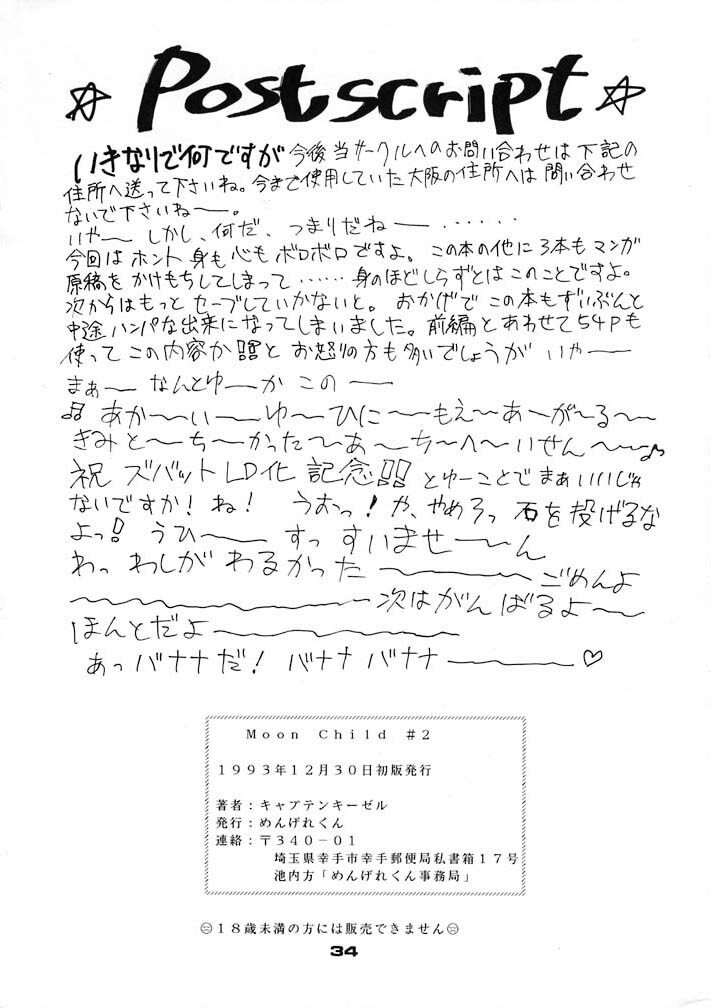 ☆ Postscript ☆
いきなりで何ですが 今後当サークルへのお問い合わせは 下記の
住所へ送って下さいね。今まで使用していた大阪の住所へは 問い合わせ
ないで下さいねー。
いやー しかし、何だ、つまりだねー ・・・・・・
今回は ホント 身も心も ボロボロですよ。 この本の他に 3本も マンガ
原稿を かけもちしてしまって ・・・・・・ 身のほどしらずとは このことですよ。
次からはもっと セーブしていかないと。 おかげで この本も ずいぶんと
中途ハンパな出来になってしまいました。前編とあわせて 54Pも
使って この内容か!!と お怒りの方も多いでしょうが いやー
まぁー なんとゆーか この ー
♫ あか〜い〜ゆ〜ひに〜もえ〜あ〜が〜る〜
きみと〜ち〜かった〜あ〜ち〜へ〜いせん〜♪
祝 ズバットLD化 記念!! とゆーことで まぁいいじゃ
ないですか! ね! うおっ! や、やめろっ 石を投げるな
よっ! うひ〜 すっ すいませ〜ん
わっ わしが わるかった〜 ごめんよ
〜 次は がんばるよ〜
ほんとだよ〜
あっ バナナだ! バナナ バナナ 〜 ♡
Moon Child #2
1993年12月30日初版発行
著者：キャプテンキーゼル
発行：めんげれくん
連絡：〒340－01
埼玉県幸手市幸手郵便局私書箱17号
池内方「めんげれくん事務局」
18歳未満の方には販売できません
34